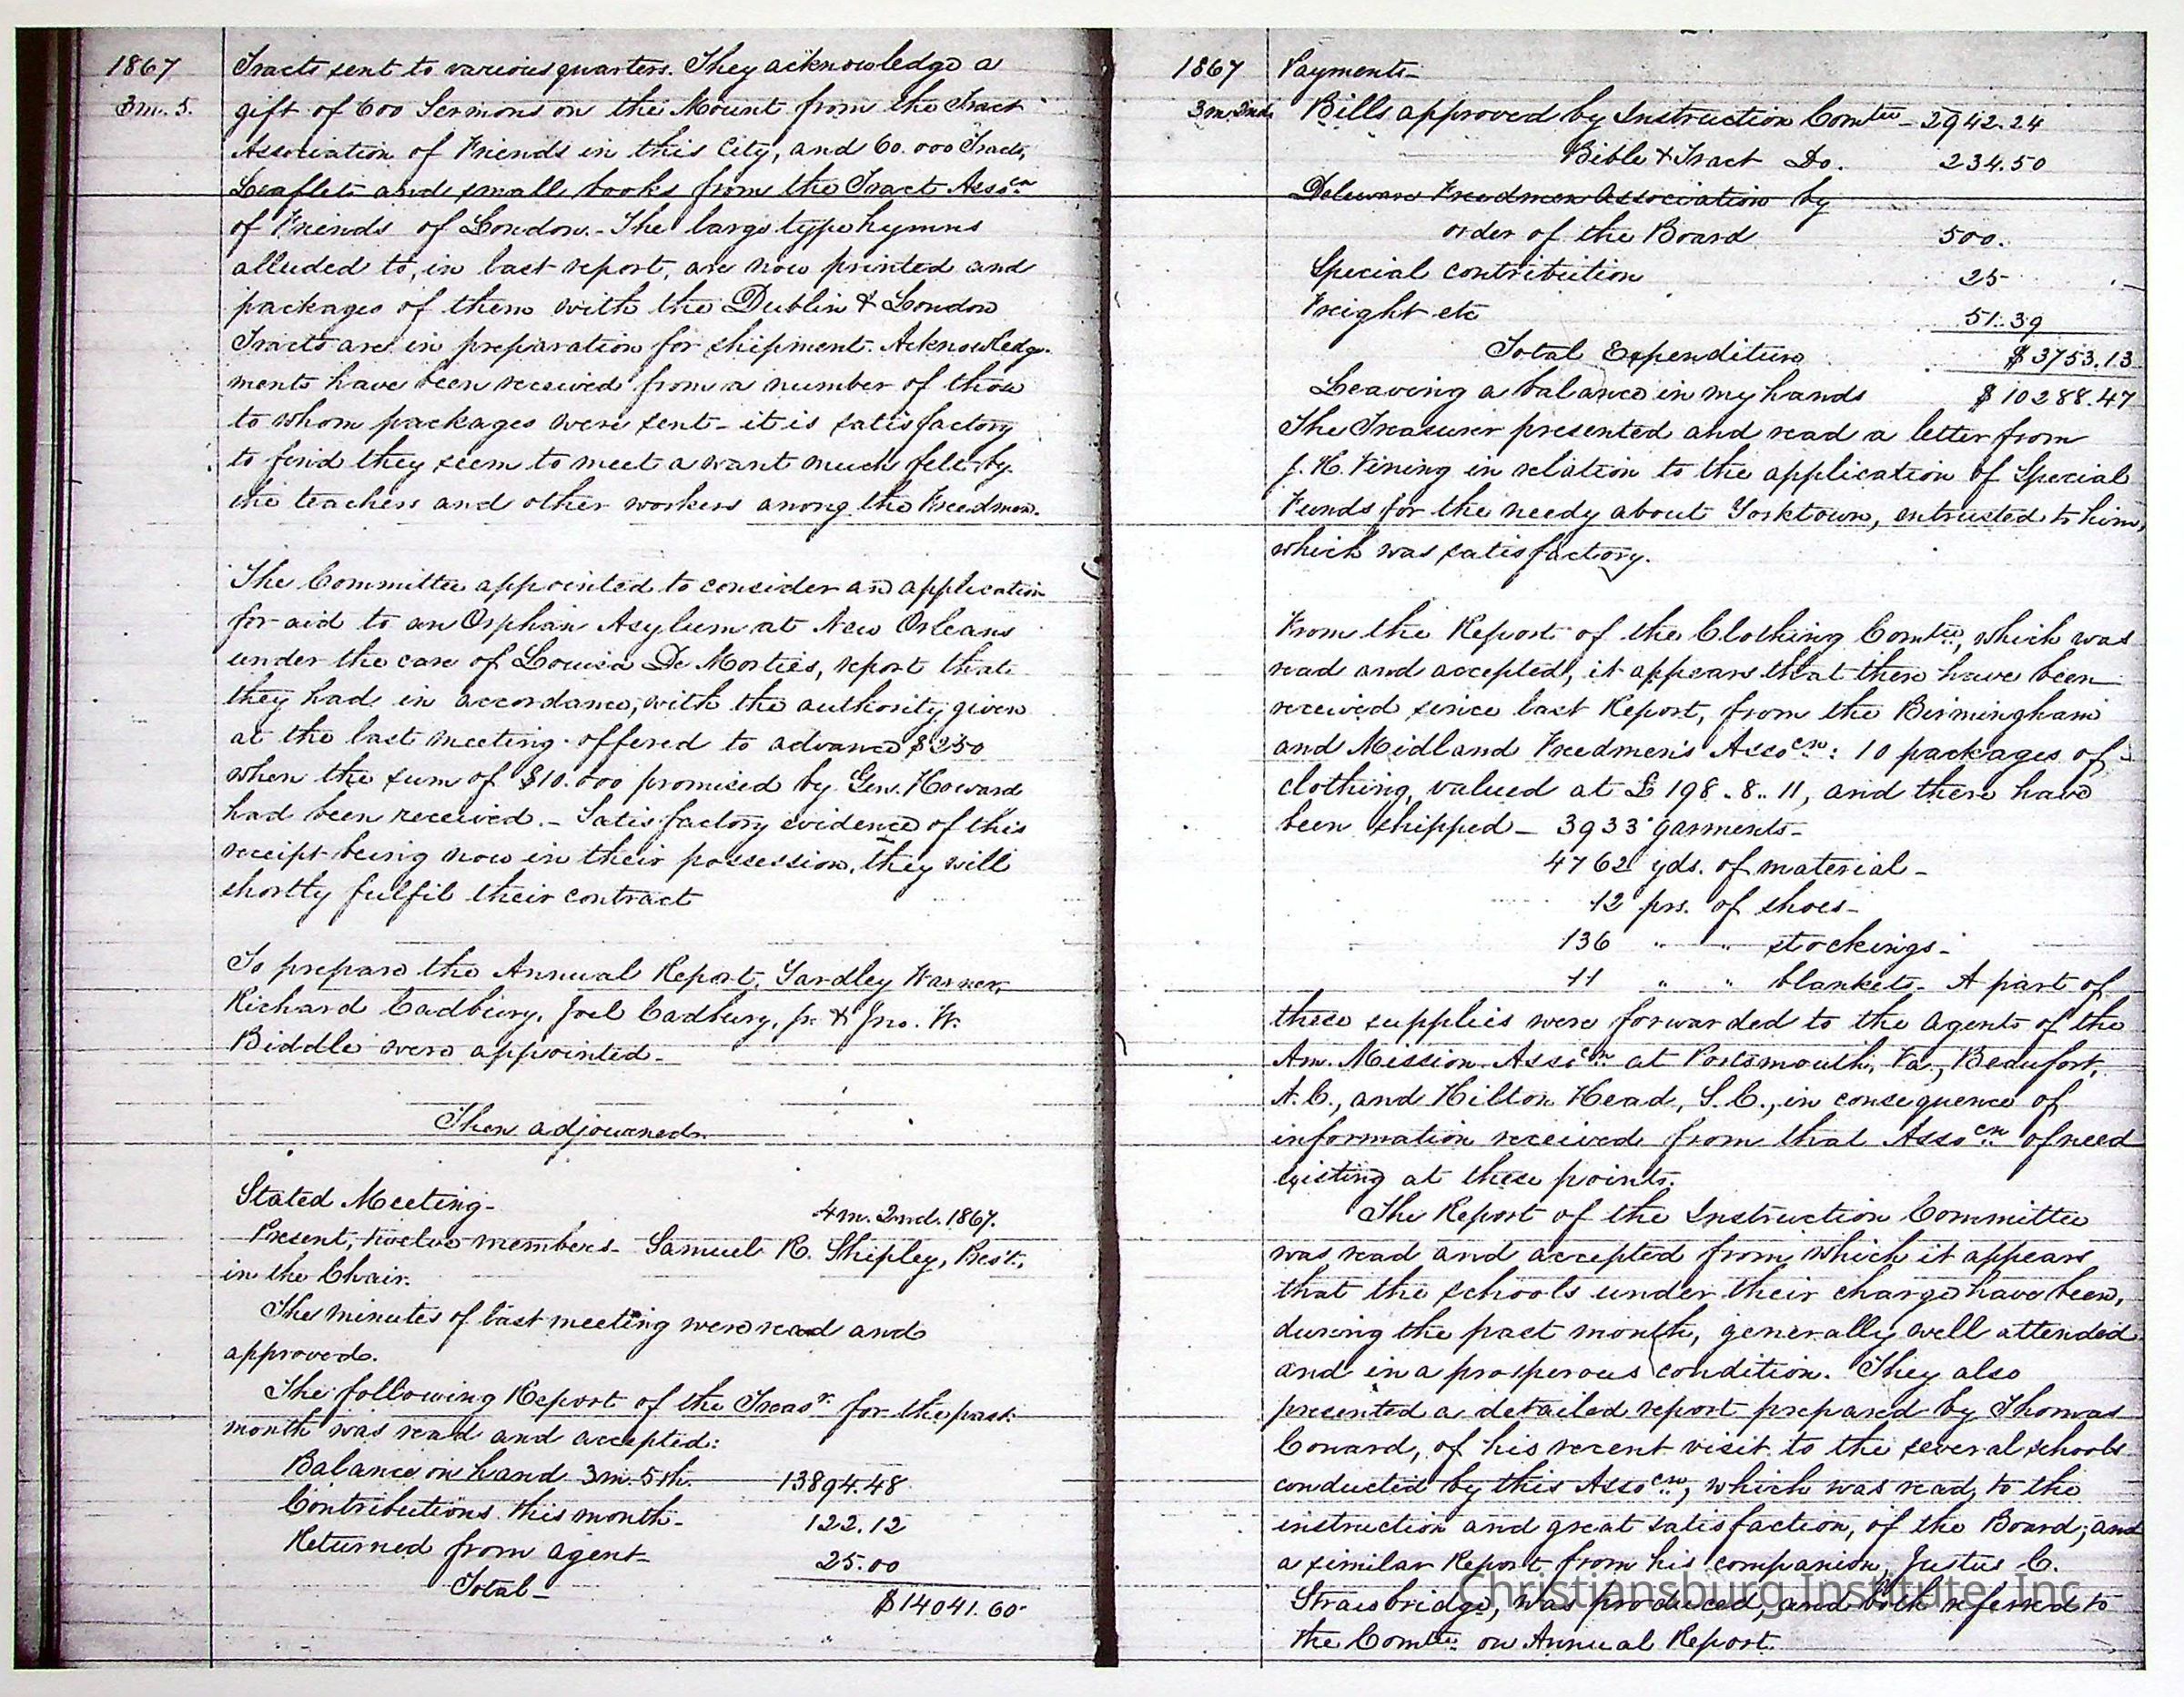 1867
3m. 5.
Tracts sent to various quarters. They acknowledge a
gift of 600 Sermons on the Mount from the Tract
Association of Friends in this City, and 60.000 Tracts,
Leaflets and small books from the Tract Asso.cn
of Friends of London. - The large type hymns
alluded to, in last report, are now printed and
packages of them with the Dublin & London
Tracts are in preparation for shipment. Acknowledg-
ments have been received from a number of those
to whom packages were sent - it is satisfactory
to find they seem to meet a want much felt by
the teachers and other workers among the Freedmen.
The Committee appointed to consider an application
for aid to an Orphan Asylum at New Orleans
under the care of Louisa De Morties, report that
they had in accordance, with the authority given
at the last meeting offered to advance $250
when the sum of $10.000 promised by Gen. Howard
had been received. - Satisfactory evidence of this
receipt being now in their possession, they will
shortly fulfil their contract
To prepare the Annual Report, Yardley Warner,
Richard Cadbury, Joel Cadbury, jr. & Jno. W.
Biddle were appointed -
Then adjourned.
Stated Meeting - 4m. 2nd. 1867.
Present, twelve members - Samuel R. Shipley, Prest.,
in the Chair.
The minutes of last meeting were read and
approved.
The following Report of the Treasr. for the past
month was read and accepted:
Balance on hand 3m. 5th. 13894.48
Contributions this month - 122.12
Returned from agent - 25.00
Total - $14041.60
1867
3m. 2nd.
Payments -
Bills approved by Instruction Comtee - 2942.24
Bible & Tract Do. 234.50
Deleware Freedmen Association by
order of the Board 500.
Special contribution 25
Freight etc 51.39
Total Expenditure $3753.13
Leaving a balance in my hands $10288.47
The Treasurer presented and read a letter from
J. H. Vining in relation to the application of Special
Funds for the needy about Yorktown, entrusted to him,
which was satisfactory.
From the Report of the Clothing Comtee, which was
read and accepted, it appears that there have been
received since last Report, from the Birmingham
and Midland Freedmen's Assocn: 10 packages of
clothing, valued at £198..8..11, and there have
been shipped - 3933 garments -
4762 yds. of material -
12 prs. of shoes -
136 " " stockings -
11 " " blankets - A part of
these supplies were forwarded to the Agents of the
Am. Mission. Assocn. at Portsmouth, Va., Beaufort,
N.C., and Hilton Head, S.C., in consequence of
information received from that Assocn. of need
existing at these points.
The Report of the Instruction Committee
was read and accepted from which it appears
that the schools under their charge have been,
during the past month, generally well attended
and in a prosperous condition. They also
presented a detailed report prepared by Thomas
Conard, of his recent visit to the several schools
conducted by this Assocn., which was read, to the
instruction and great satisfaction, of the Board; and
a similar Report from his companion, Justus C.
Strawbridge, was produced, and both referred to
the Comtee. on Annual Report.
Christiansburg Institute, Inc